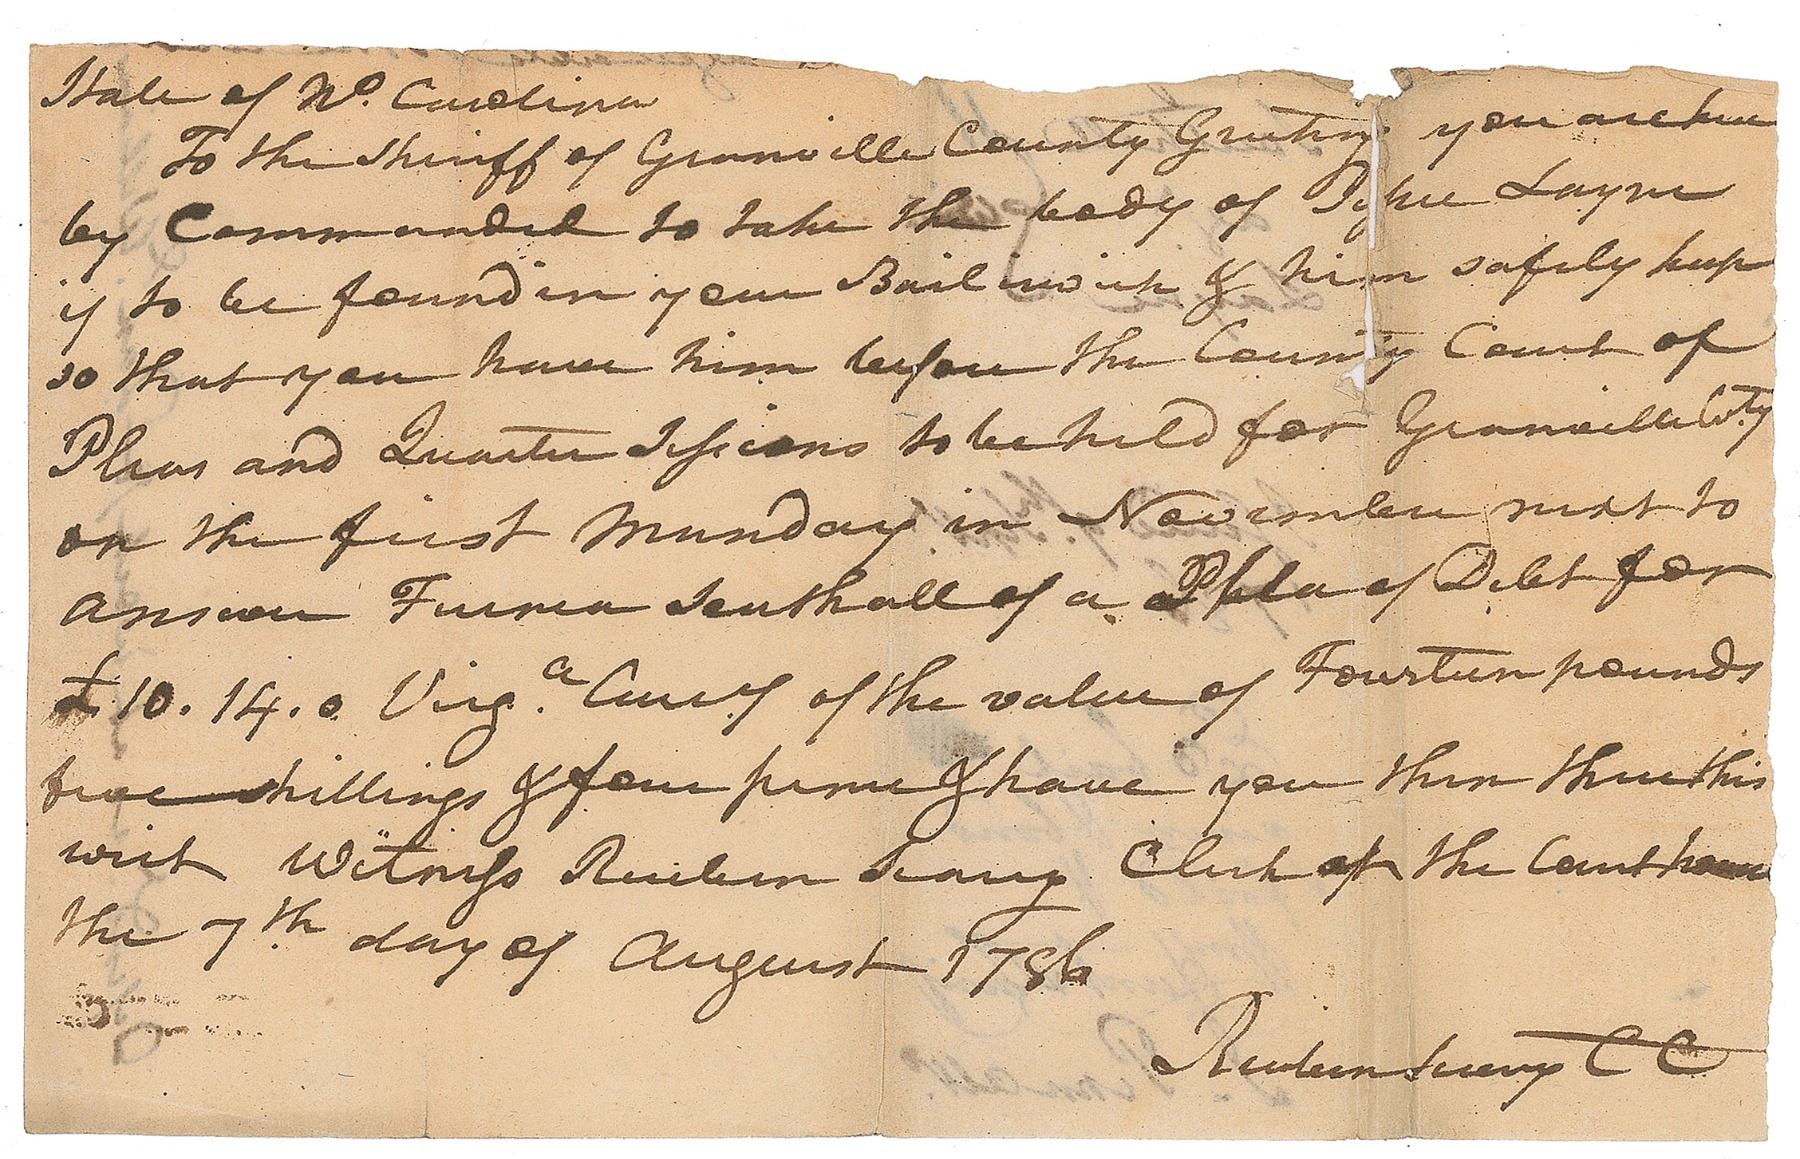 State of No. Carolina
To the Sheriff of Granville County Greeting you are here
by Commanded to take the body of Tyhee Layne
if to be found in your Bailiwick & him safely keep
so that you have him before the County Court of
Pleas and Quarter Sessions to be held for Granville Coty
on the first Munday in November next to
answer Furnea Southall of a Plea of Debt for
£10.14.0 Virga. Curcy of the value of Fourteen pounds
five shillings & four pence & have you then there this
writ Witness Reuben Searcy Clerk of the Court house
the 7th day of August 1786
Reuben Searcy CC